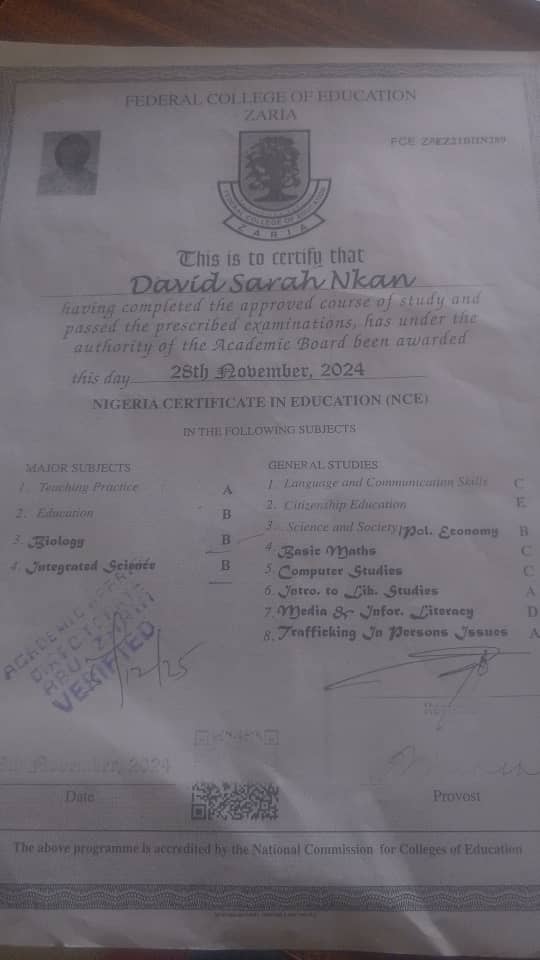 FEDERAL COLLEGE OF EDUCATION
ZARIA
FCE
FEDERAL COLLEGE OF EDUCATION
ZARIA
This is to certify that
David Sarah Nkan
having completed the approved course of study and
passed the prescribed examinations, has under the
authority of the Academic Board been awarded
this day 28th November, 2024
NIGERIA CERTIFICATE IN EDUCATION (NCE)
IN THE FOLLOWING SUBJECTS
MAJOR SUBJECTS
1. Teaching Practice A
2. Education B
3. Biology B
4. Integrated Science B
GENERAL STUDIES
1. Language and Communication Skills C
2. Citizenship Education E
3. Science and Society/Pol. Economy B
4. Basic Maths C
5. Computer Studies C
6. Intro. to Lib. Studies A
7. Media & Infor. Literacy D
8. Trafficking In Persons Issues A
ACADEMIC
VERIFIED
/12/25
November, 2024
Date
Provost
The above programme is accredited by the National Commission for Colleges of Education